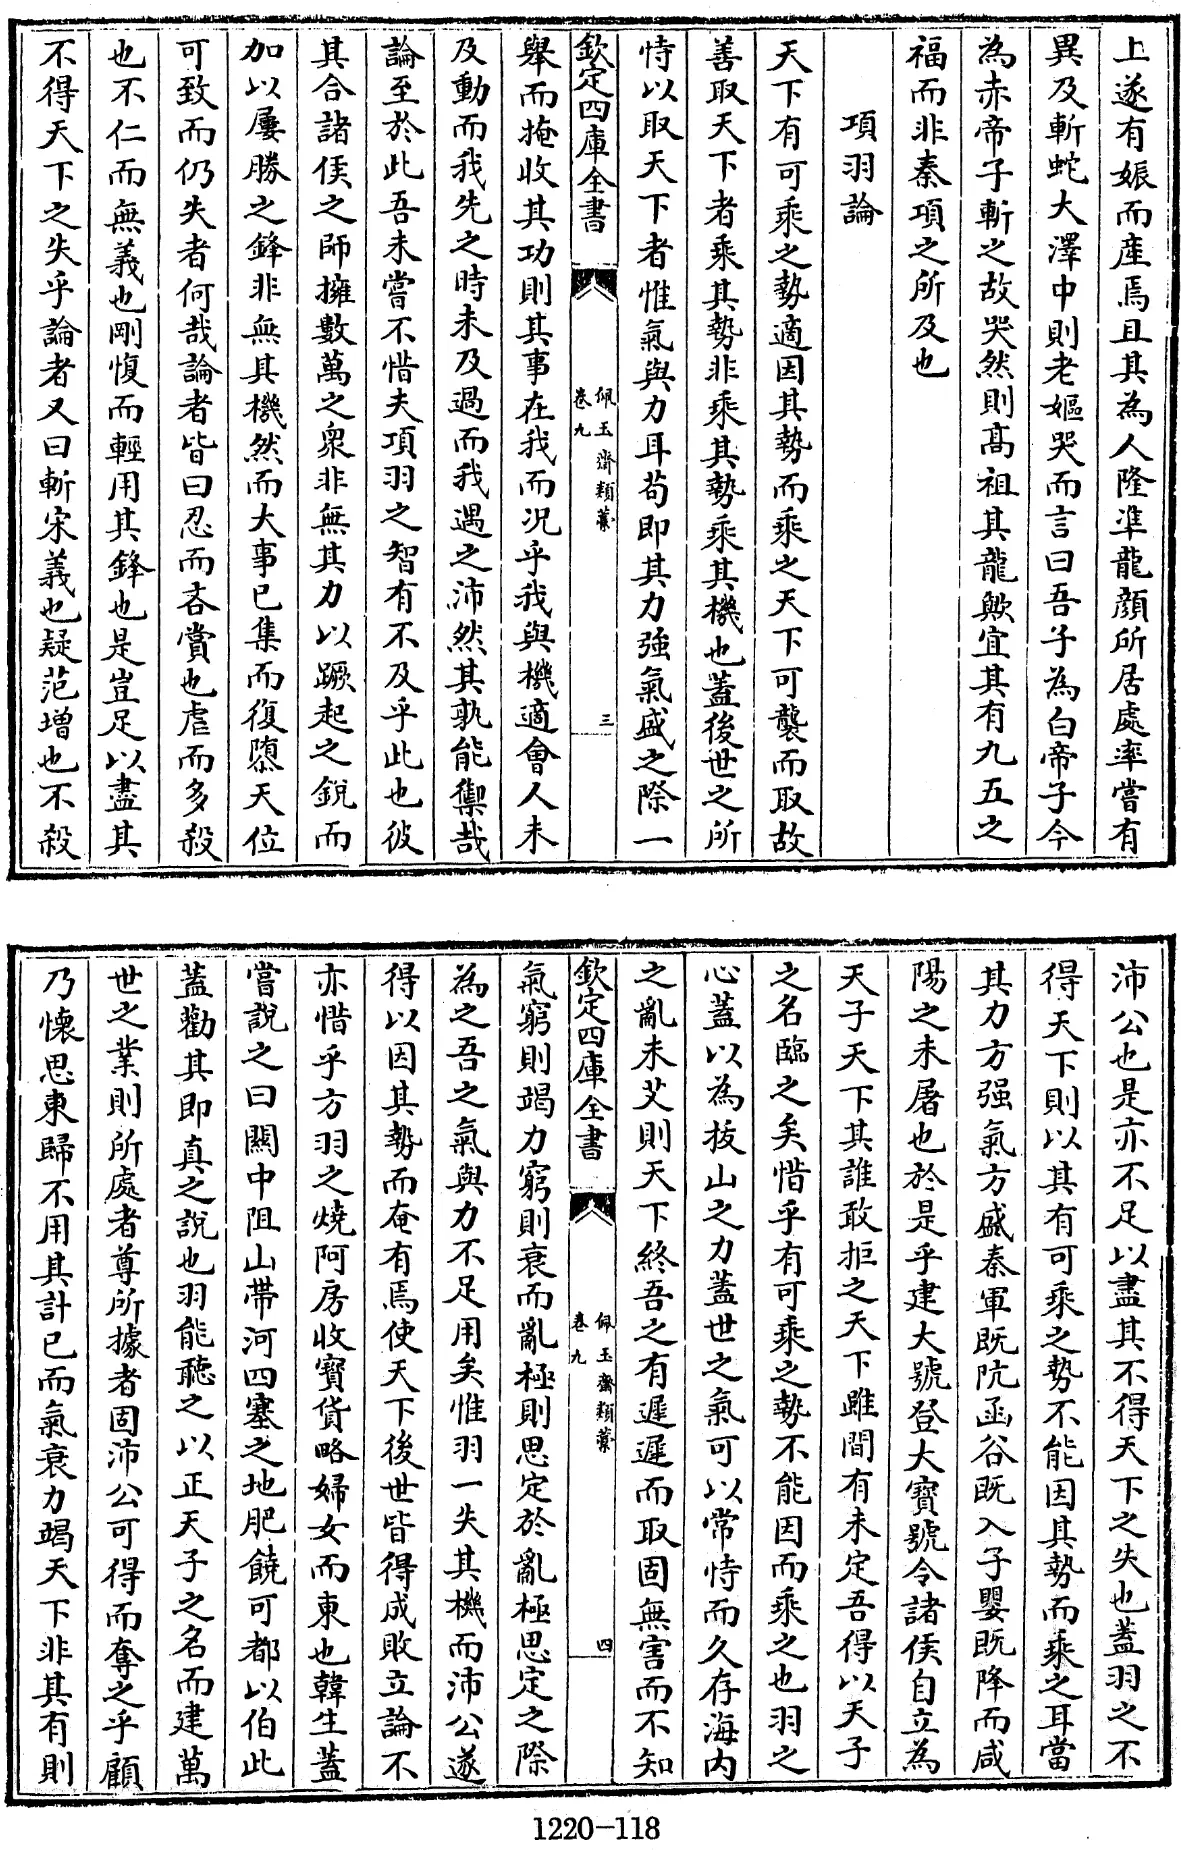 上遂有娠而産焉且其為人隆準龍顔所居處率嘗有
異及斬蛇大澤中則老嫗哭而言曰吾子為白帝子今
為赤帝子斬之故哭然則髙祖其龍歟宜其有九五之
福而非秦項之所及也
項羽論
天下有可乘之勢適因其勢而乘之天下可襲而取故
善取天下者乘其勢非乘其勢乘其機也蓋後世之所
恃以取天下者惟氣與力耳苟即其力強氣盛之際一
欽定四庫全書
佩玉齋類藁
卷九
三
舉而掩收其功則其事在我而况乎我與機適會人未
及動而我先之時未及過而我遇之沛然其孰能禦哉
論至於此吾未嘗不惜夫項羽之智有不及乎此也彼
其合諸侯之師擁數萬之衆非無其力以蹶起之銳而
加以屢勝之鋒非無其機然而大事已集而復隳天位
可致而仍失者何哉論者皆曰忍而吝賞也虐而多殺
也不仁而無義也剛愎而輕用其鋒也是豈足以盡其
不得天下之失乎論者又曰斬宋義也疑范增也不殺
沛公也是亦不足以盡其不得天下之失也蓋羽之不
得天下則以其有可乘之勢不能因其勢而乘之耳當
其力方强氣方盛秦軍既阬函谷既入子嬰既降而咸
陽之未屠也於是乎建大號登大寳號令諸侯自立為
天子天下其誰敢拒之天下雖間有未定吾得以天子
之名臨之矣惜乎有可乘之勢不能因而乘之也羽之
心蓋以為拔山之力蓋世之氣可以常恃而久存海内
之亂未艾則天下終吾之有遲遲而取固無害而不知
欽定四庫全書
佩玉齋類藁
卷九
四
氣窮則竭力窮則衰而亂極則思定於亂極思定之際
為之吾之氣與力不足用矣惟羽一失其機而沛公遂
得以因其勢而奄有焉使天下後世皆得成敗立論不
亦惜乎方羽之燒阿房收寳貨略婦女而東也韓生蓋
嘗說之曰關中阻山帶河四塞之地肥饒可都以伯此
蓋勸其即真之說也羽能聽之以正天子之名而建萬
世之業則所處者尊所據者固沛公可得而奪之乎顧
乃懷思東歸不用其計已而氣衰力竭天下非其有則
1220-118